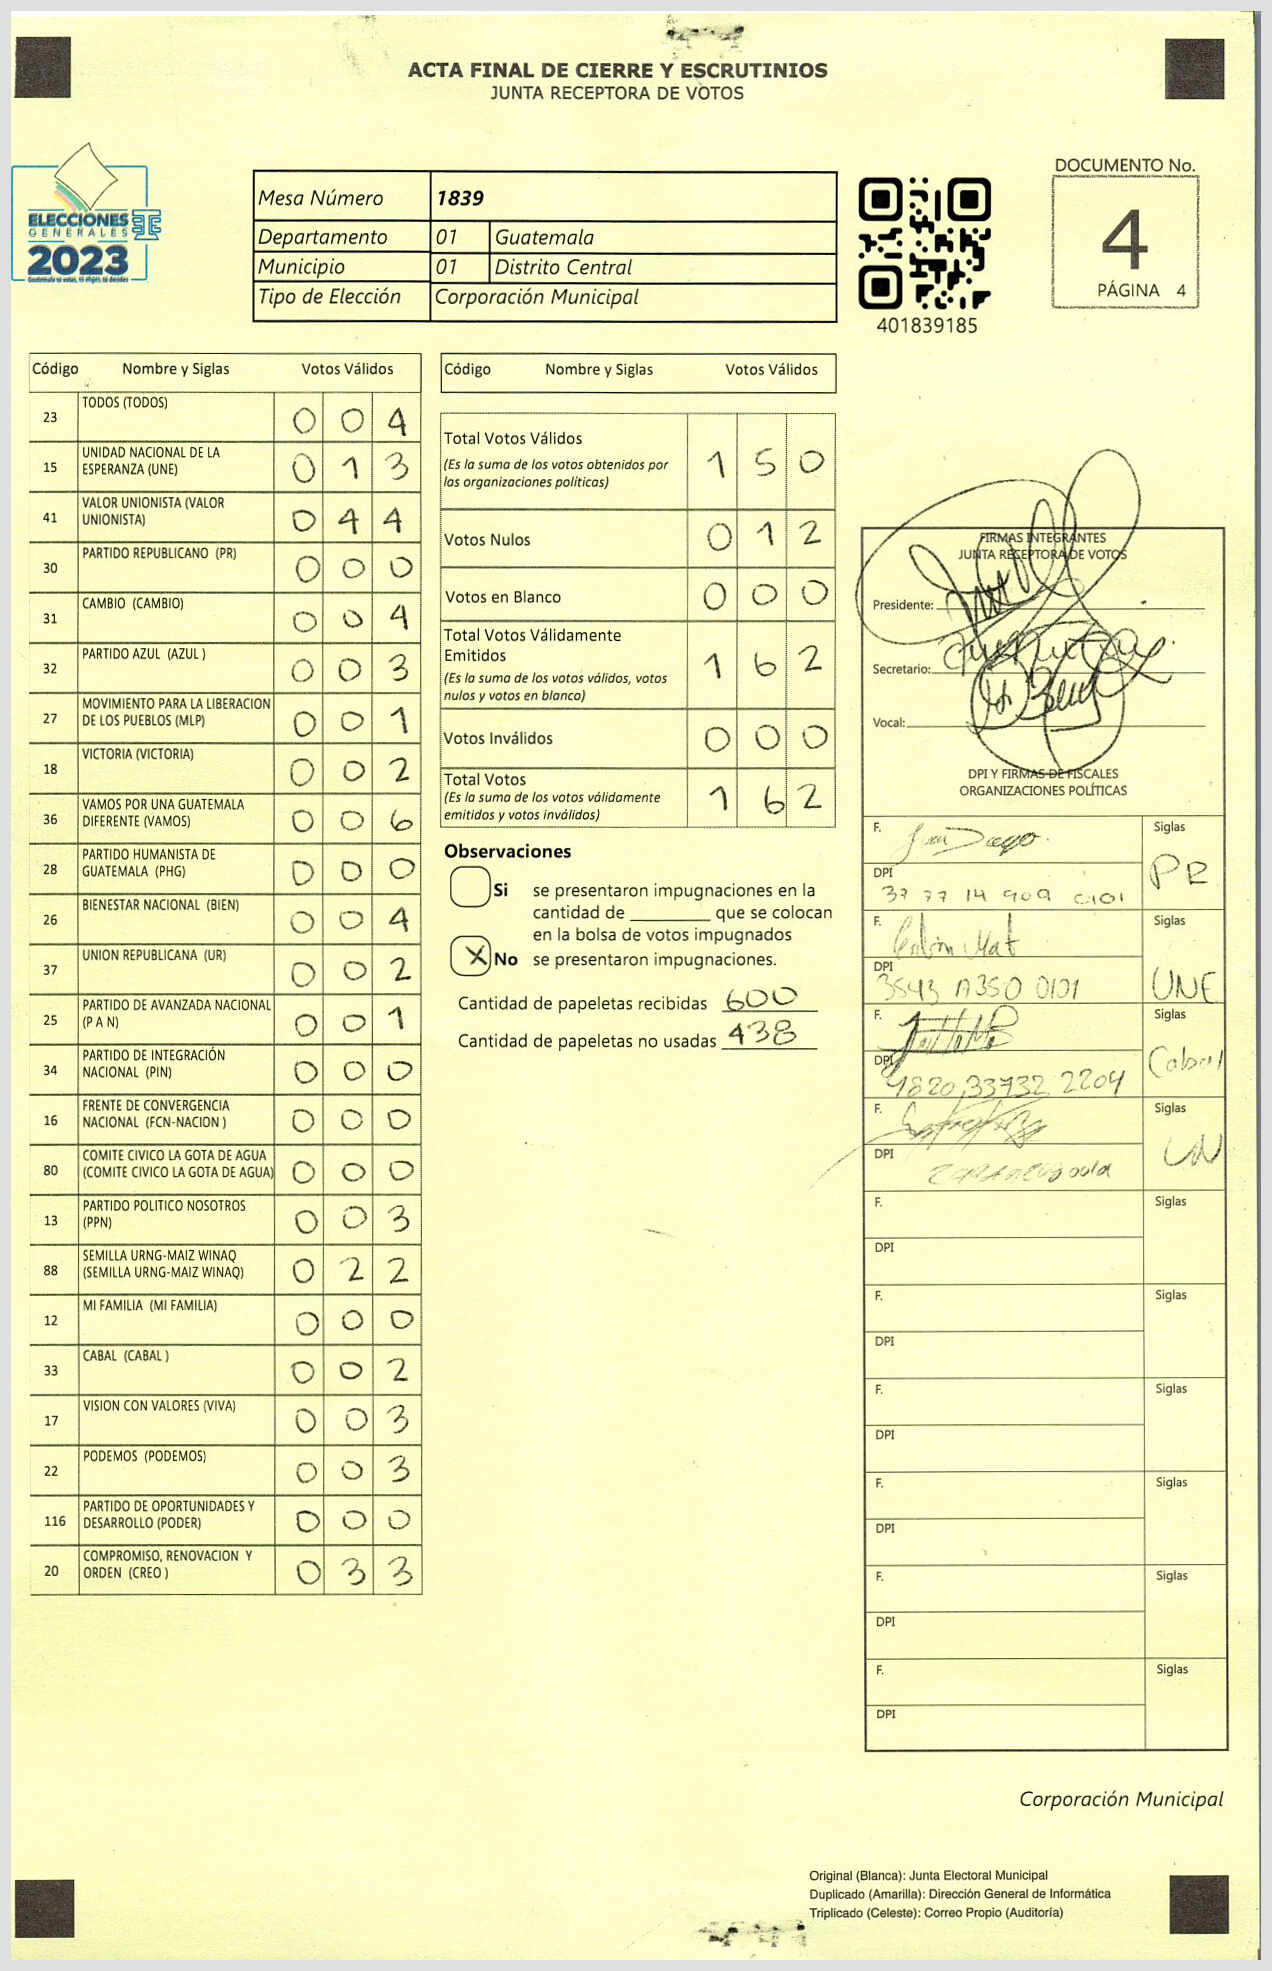 ACTA FINAL DE CIERRE Y ESCRUTINIOS
JUNTA RECEPTORA DE VOTOS
ELECCIONES
GENERALES
2023
Mesa Número 1839
Departamento 01 Guatemala
Municipio 01 Distrito Central
Tipo de Elección Corporación Municipal
401839185
DOCUMENTO No.
4
PÁGINA 4
Código Nombre y Siglas Votos Válidos
23 TODOS (TODOS) 0 0 4
15 UNIDAD NACIONAL DE LA ESPERANZA (UNE) 0 1 3
41 VALOR UNIONISTA (VALOR UNIONISTA) 0 4 4
30 PARTIDO REPUBLICANO (PR) 0 0 0
31 CAMBIO (CAMBIO) 0 0 4
32 PARTIDO AZUL (AZUL ) 0 0 3
27 MOVIMIENTO PARA LA LIBERACION DE LOS PUEBLOS (MLP) 0 0 1
18 VICTORIA (VICTORIA) 0 0 2
36 VAMOS POR UNA GUATEMALA DIFERENTE (VAMOS) 0 0 6
28 PARTIDO HUMANISTA DE GUATEMALA (PHG) 0 0 0
26 BIENESTAR NACIONAL (BIEN) 0 0 4
37 UNION REPUBLICANA (UR) 0 0 2
25 PARTIDO DE AVANZADA NACIONAL (P A N) 0 0 1
34 PARTIDO DE INTEGRACIÓN NACIONAL (PIN) 0 0 0
16 FRENTE DE CONVERGENCIA NACIONAL (FCN-NACION ) 0 0 0
80 COMITE CIVICO LA GOTA DE AGUA (COMITE CIVICO LA GOTA DE AGUA) 0 0 0
13 PARTIDO POLITICO NOSOTROS (PPN) 0 0 3
88 SEMILLA URNG-MAIZ WINAQ (SEMILLA URNG-MAIZ WINAQ) 0 2 2
12 MI FAMILIA (MI FAMILIA) 0 0 0
33 CABAL (CABAL ) 0 0 2
17 VISION CON VALORES (VIVA) 0 0 3
22 PODEMOS (PODEMOS) 0 0 3
116 PARTIDO DE OPORTUNIDADES Y DESARROLLO (PODER) 0 0 0
20 COMPROMISO, RENOVACION Y ORDEN (CREO ) 0 3 3
Código Nombre y Siglas Votos Válidos
Total Votos Válidos 1 5 0
(Es la suma de los votos obtenidos por
las organizaciones políticas)
Votos Nulos 0 1 2
Votos en Blanco 0 0 0
Total Votos Válidamente
Emitidos 1 6 2
(Es la suma de los votos válidos, votos
nulos y votos en blanco)
Votos Inválidos 0 0 0
Total Votos 1 6 2
(Es la suma de los votos válidamente
emitidos y votos inválidos)
Observaciones
Si se presentaron impugnaciones en la
cantidad de ________ que se colocan
en la bolsa de votos impugnados
X No se presentaron impugnaciones.
Cantidad de papeletas recibidas 600
Cantidad de papeletas no usadas 438
FIRMAS INTEGRANTES
JUNTA RECEPTORA DE VOTOS
Presidente:
Secretario:
Vocal:
DPI Y FIRMAS DE FISCALES
ORGANIZACIONES POLÍTICAS
F. Siglas
PR
DPI
37 77 14 909 0101
F. Siglas
UNE
DPI
0101
F. Siglas
Cabal
DPI
9820 33732 2204
F. Siglas
UN
DPI
F. Siglas
DPI
F. Siglas
DPI
F. Siglas
DPI
F. Siglas
DPI
F. Siglas
DPI
F. Siglas
DPI
Corporación Municipal
Original (Blanca): Junta Electoral Municipal
Duplicado (Amarilla): Dirección General de Informática
Triplicado (Celeste): Correo Propio (Auditoría)